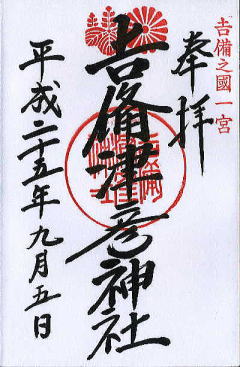 吉備之國一宮
奉拝
吉備津彦神社
平成二十五年九月五日